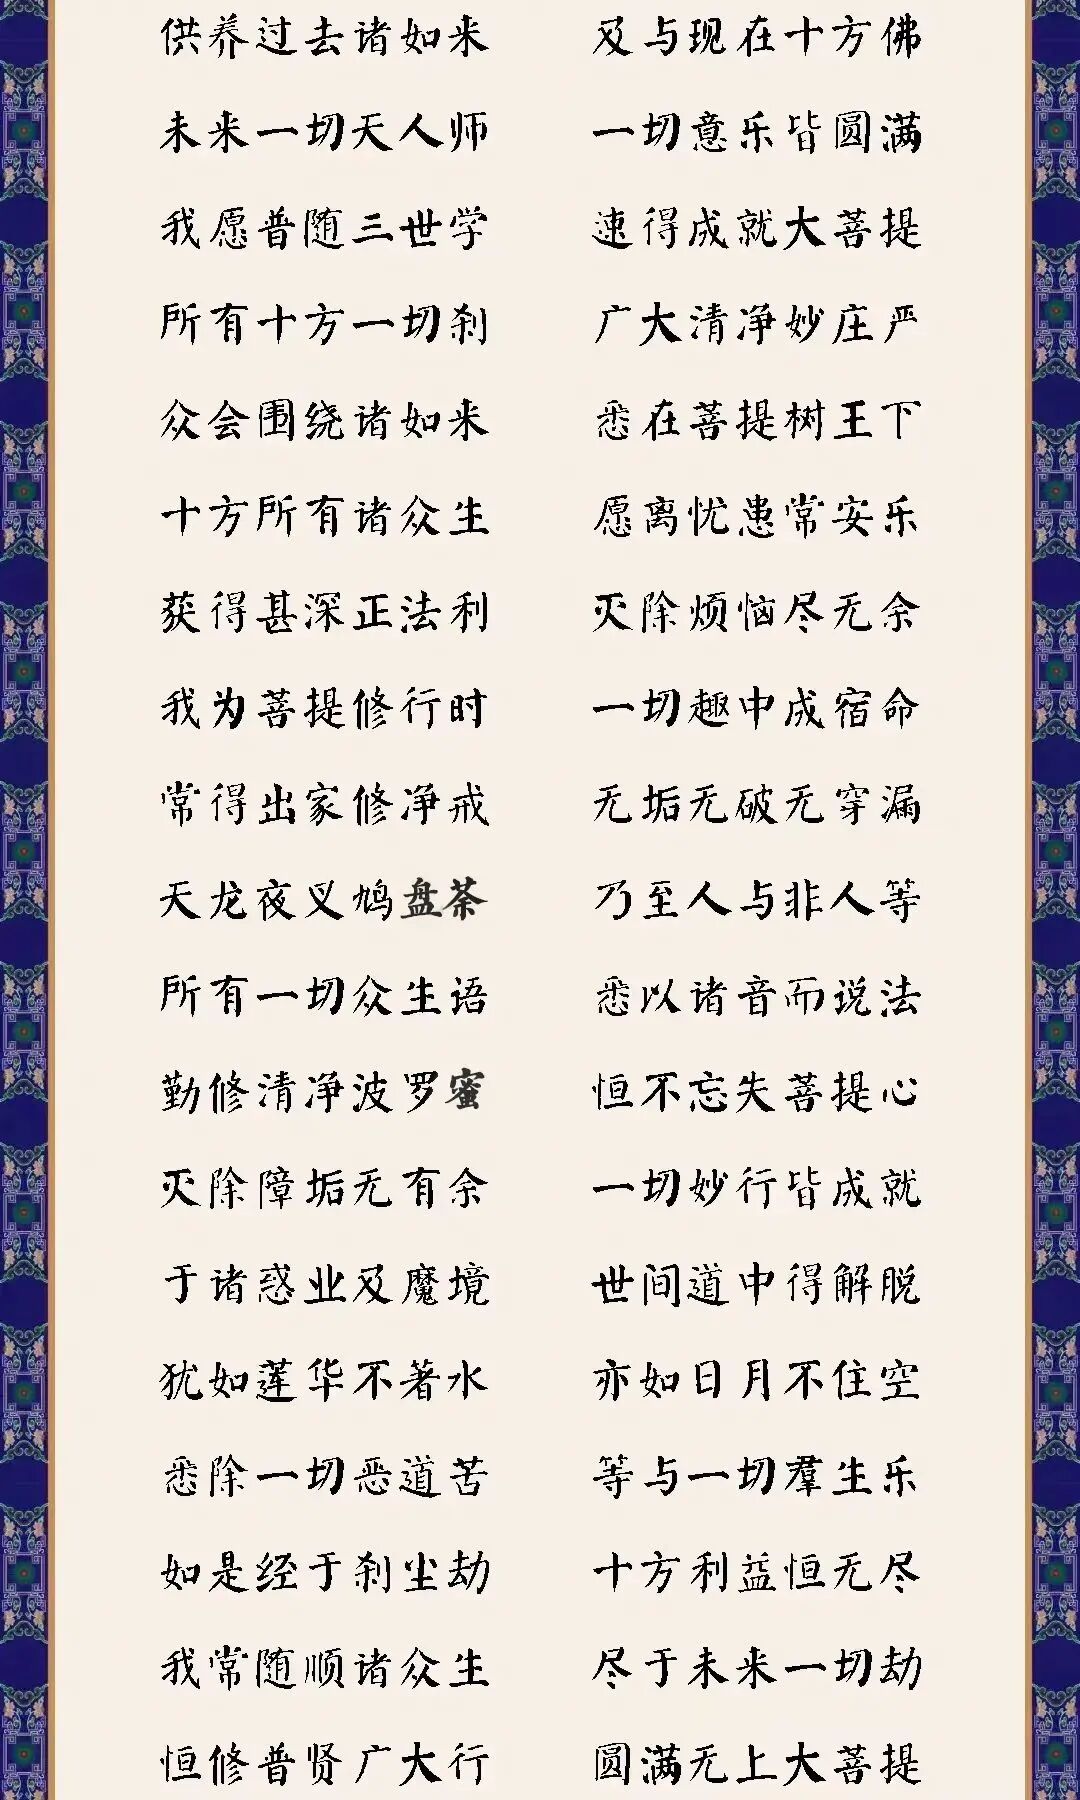 供养过去诸如来 及与现在十方佛
未来一切天人师 一切意乐皆圆满
我愿普随三世学 速得成就大菩提
所有十方一切刹 广大清净妙庄严
众会围绕诸如来 悉在菩提树王下
十方所有诸众生 愿离忧患常安乐
获得甚深正法利 灭除烦恼尽无余
我为菩提修行时 一切趣中成宿命
常得出家修净戒 无垢无破无穿漏
天龙夜叉鸠盘荼 乃至人与非人等
所有一切众生语 悉以诸音而说法
勤修清净波罗蜜 恒不忘失菩提心
灭除障垢无有余 一切妙行皆成就
于诸惑业及魔境 世间道中得解脱
犹如莲华不著水 亦如日月不住空
悉除一切恶道苦 等与一切羣生乐
如是经于刹尘劫 十方利益恒无尽
我常随顺诸众生 尽于未来一切劫
恒修普贤广大行 圆满无上大菩提